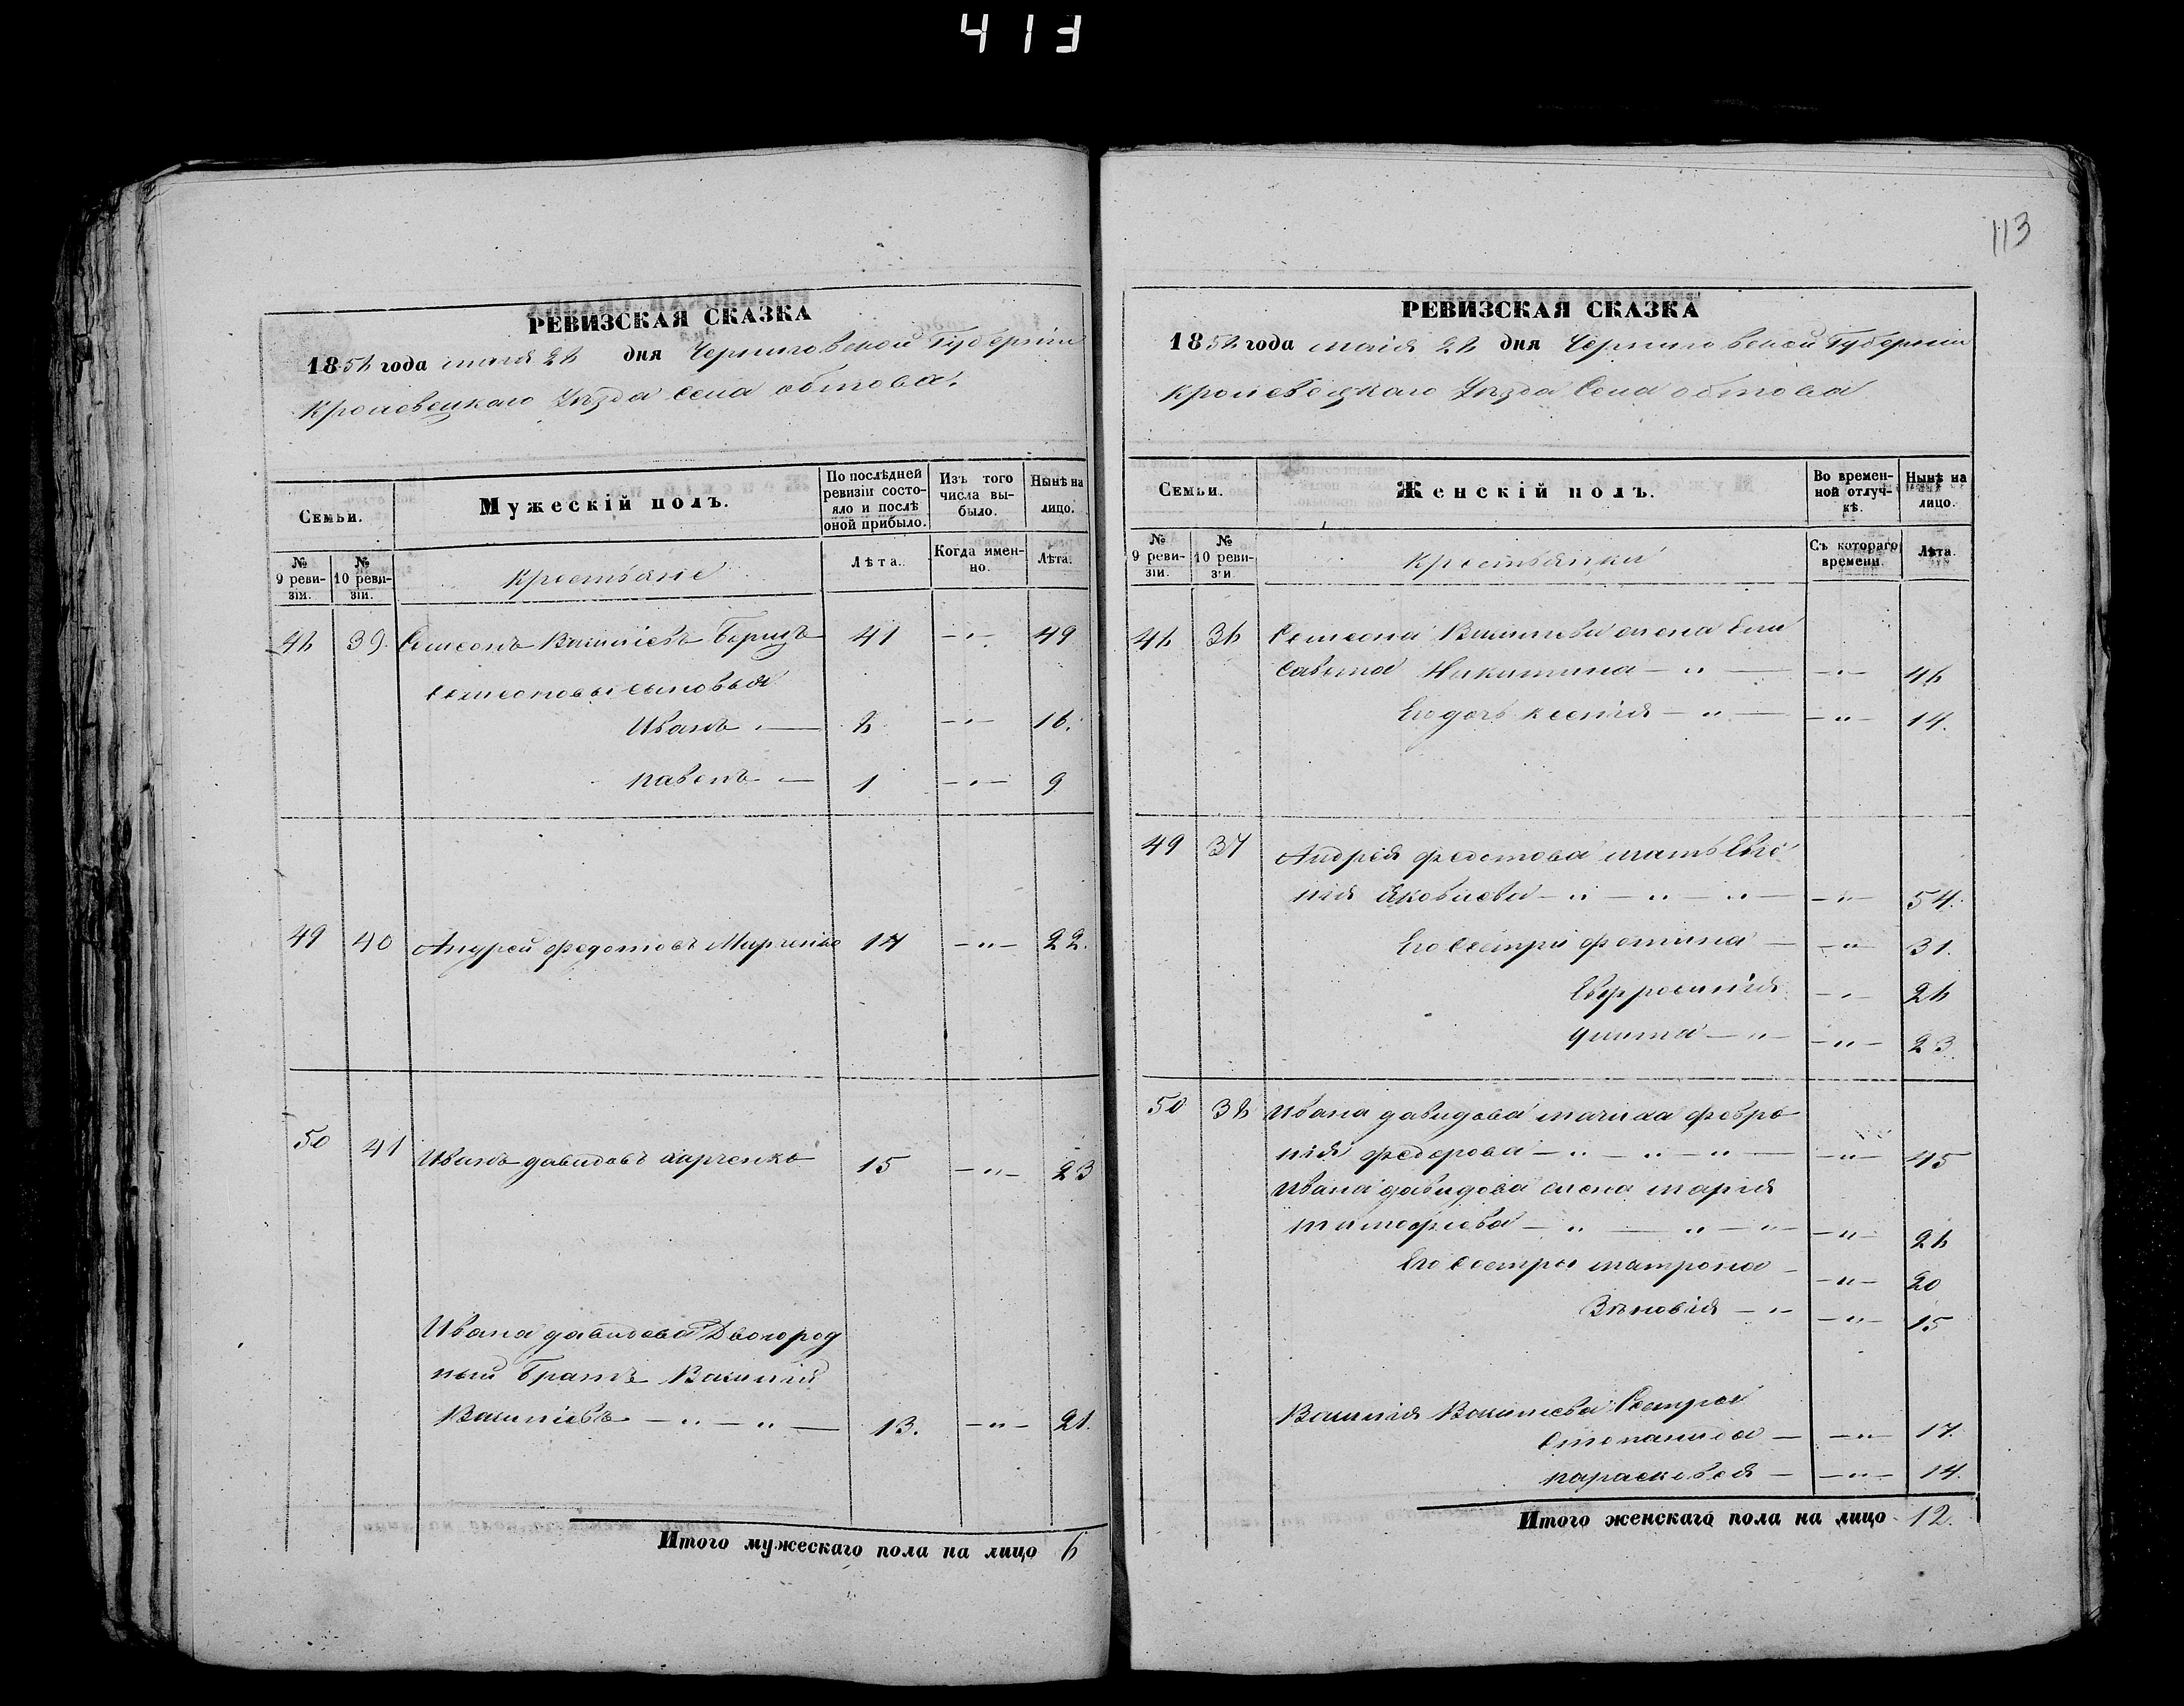 413
РЕВИЗСКАЯ СКАЗКА
1858 года маія 28 дня Черниговской Губерніи
Кролевецкаго Уѣзда Села обтова.
Семьи.
Мужескій полъ.
По послѣдней ревизіи состояло и послѣ оной прибыло.
Изъ того числа выбыло.
Нынѣ на лицо.
№ 9 ревизіи.
№ 10 ревизіи.
Крестьяне
Лѣта.
Когда именно.
Лѣта.
48 39. Семеонъ Василіевъ 41 — 49
Семеоновы сыновья
Иванъ — 8 — 16.
павелъ — 1 — 9
49 40 Андрей федотовъ Марченко 14 —"— 22.
50 41 Иванъ давидовъ харченко 15 —"— 23
Ивана давидова Двоюрод
ный Братъ Василій
Василіевъ — " — " — 13. —"— 21.
Итого мужескаго пола на лицо 6
113
РЕВИЗСКАЯ СКАЗКА
1858 года маія 28 дня Черниговской Губерніи
Кролевецкаго Уѣзда Села обтова
Семьи.
Женскій полъ.
Во временной отлучкѣ.
Нынѣ на лицо.
№ 9 ревизіи.
№ 10 ревизіи.
Крестьянки
Съ котораго времени.
Лѣта.
48 36 Семеона Василіева жена Ели
савета Никитина — " — —"— 46
Его дочь ксенія — " — —"— 14.
49 37 Андрея федотова мать Евге
нія Яковлева — " — " — " — —"— 54.
Его Сестры фотина — —"— 31.
Евфросинія — 26
—"— 23.
50 38 Ивана давидова мачиха февро
нія федорова — " — " — " — —"— 45
Ивана давидова жена марія
тимофеева — " — " — " —"— 26
Его Сестры матрона — —"— 20
Зѣновія — " —"— 15
Василія Василіева Сестры
Степанида — —"— 17.
парасковея — —"— 14.
Итого женскаго пола на лицо 12.